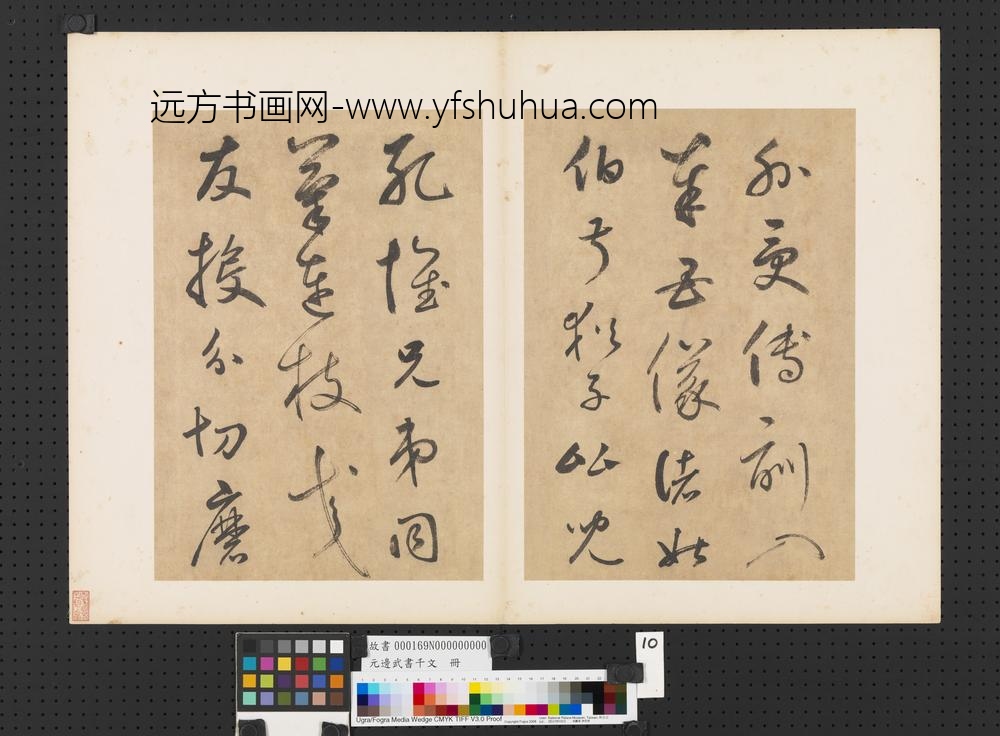 远方书画网-www.yfshuhua.com
外受傅訓入
奉母儀諸姑
伯叔猶子比兒
孔懷兄弟同
氣連枝交
友投分切磨
10
故書 000169N000000000
元邊武書千文 冊
Ugra/Fogra Media Wedge CMYK TIFF V3.0 Proof